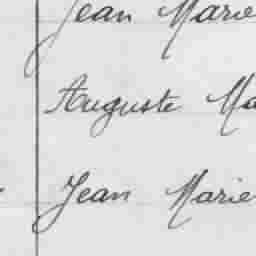 Jean Marie
Auguste Ma
Jean Marie